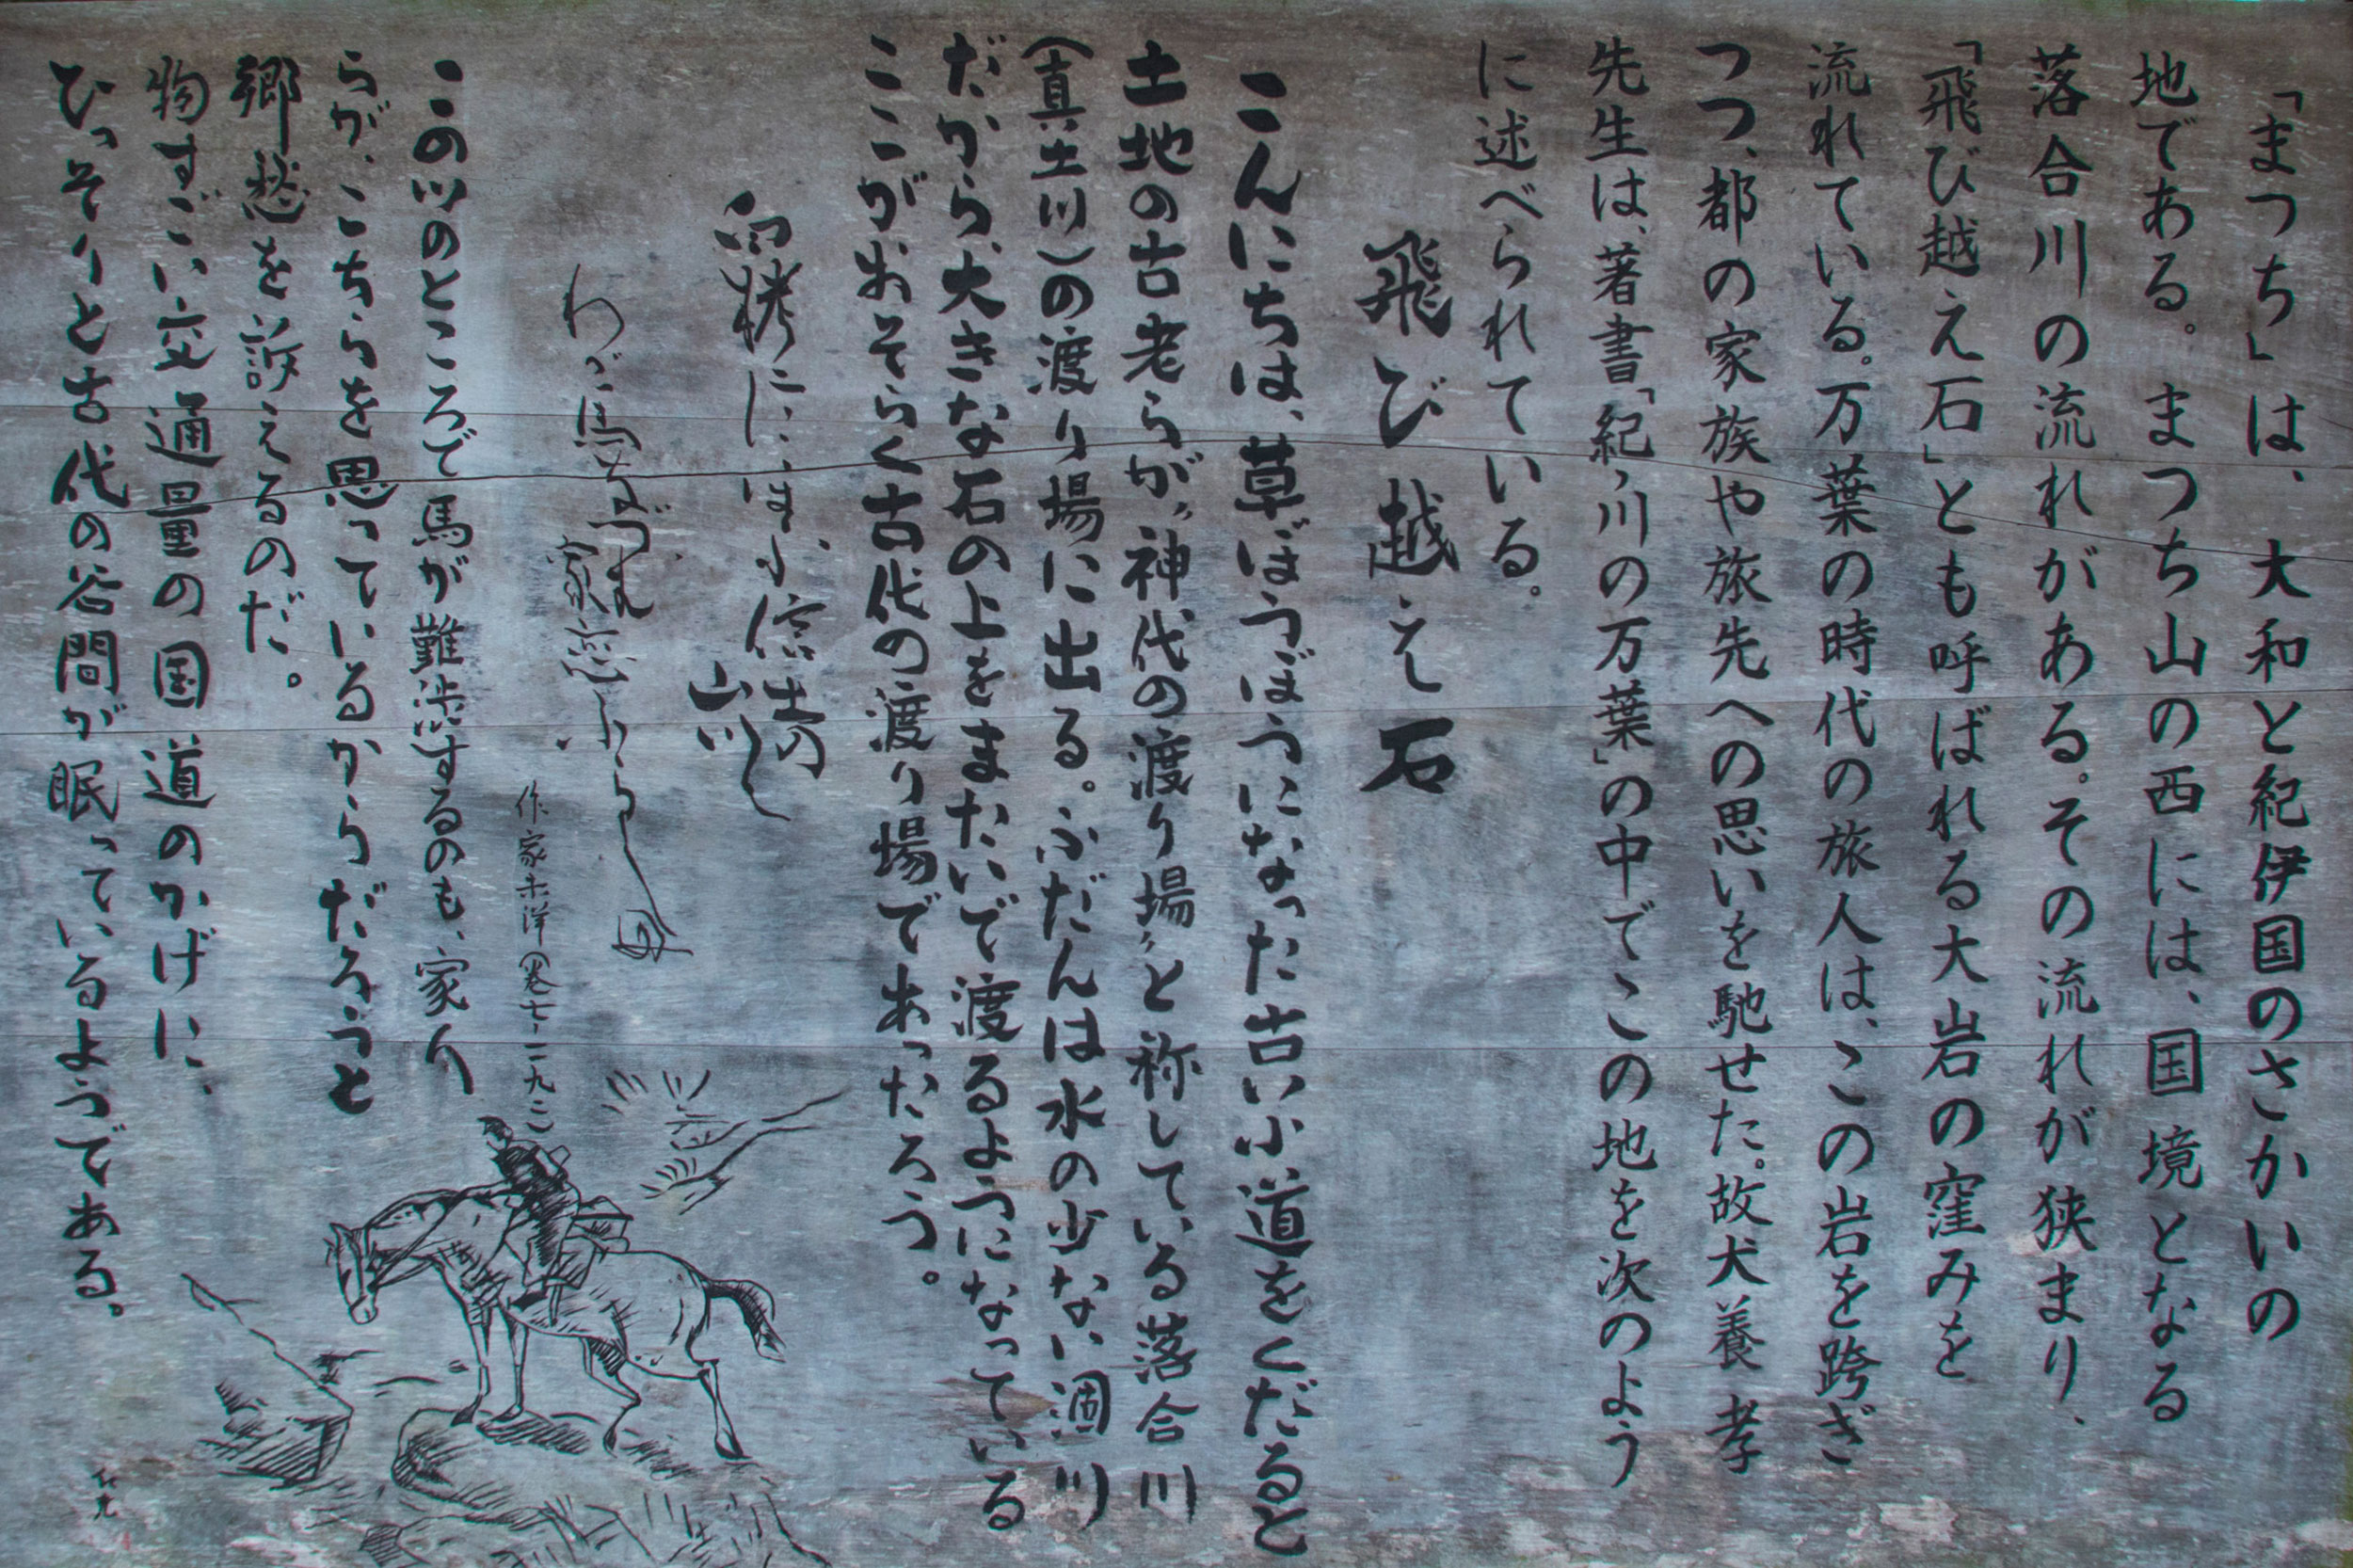 「まつち」は、大和と紀伊国のさかいの
地である。まつち山の西には、国境となる
落合川の流れがある。その流れが狭まり、
「飛び越え石」とも呼ばれる大岩の窪みを
流れている。万葉の時代の旅人は、この岩を跨ぎ
つつ、都の家族や旅先への思いを馳せた。故犬養 孝
先生は、著書「紀ノ川の万葉」の中でこの地を次のよう
に述べられている。
飛び越え石
こんにちは、草ぼうぼうになった古い小道をくだると
土地の古老らが〝神代の渡り場〟と称している落合川
(真土川)の渡り場に出る。ふだんは水の少ない涸川
だから、大きな石の上をまたいで渡るようになっている
ここがおそらく古代の渡り場であったろう。
白栲ににほふ信土の
山川に
わが馬なづむ
家恋ふらしも
作家未詳(巻七-一一九二)
この川のところで馬が難渋するのも、家人
らが、こちらを思っているからだろうと
郷愁を訴えるのだ。
物すごい交通量の国道のかげに、
ひっそりと古代の谷間が眠っているようである。